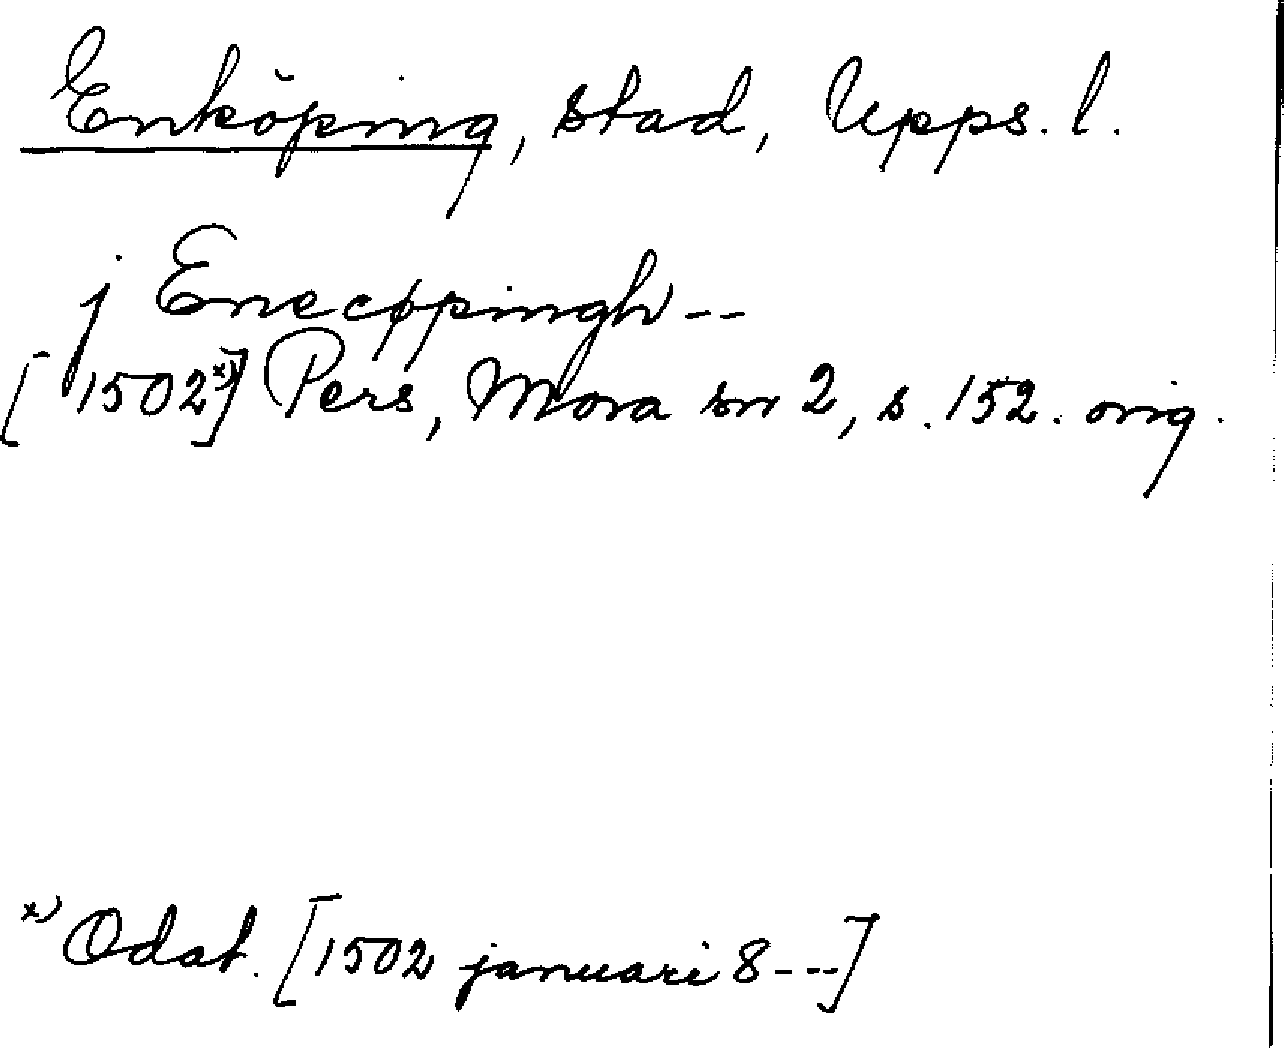 Enköping, stad, Upps. l.
j Enecøpingh --
[1502 x)] Pers, Mora sn 2, s. 152. orig.
x) Odat. [1502 januari 8---]